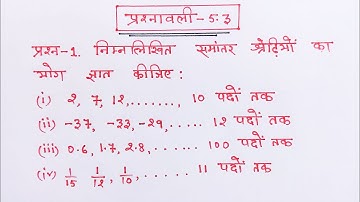 प्रश्नावली - 5.3
प्रश्न-1. निम्नलिखित समांतर श्रेढ़ियों का
योग ज्ञात कीजिए :
(i) 2, 7, 12, ......., 10 पदों तक
(ii) -37, -33, -29, ..... 12 पदों तक
(iii) 0.6, 1.7, 2.8, ...... 100 पदों तक
(iv) 1/15, 1/12, 1/10, ...... 11 पदों तक